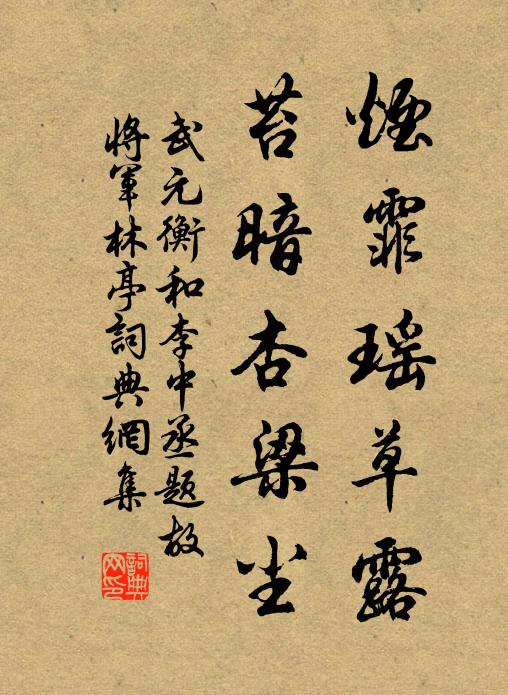 煙霏瑶草露
苔暗杏梁尘
武元衡和李中丞题故
将军林亭詞典網集
詞典网印